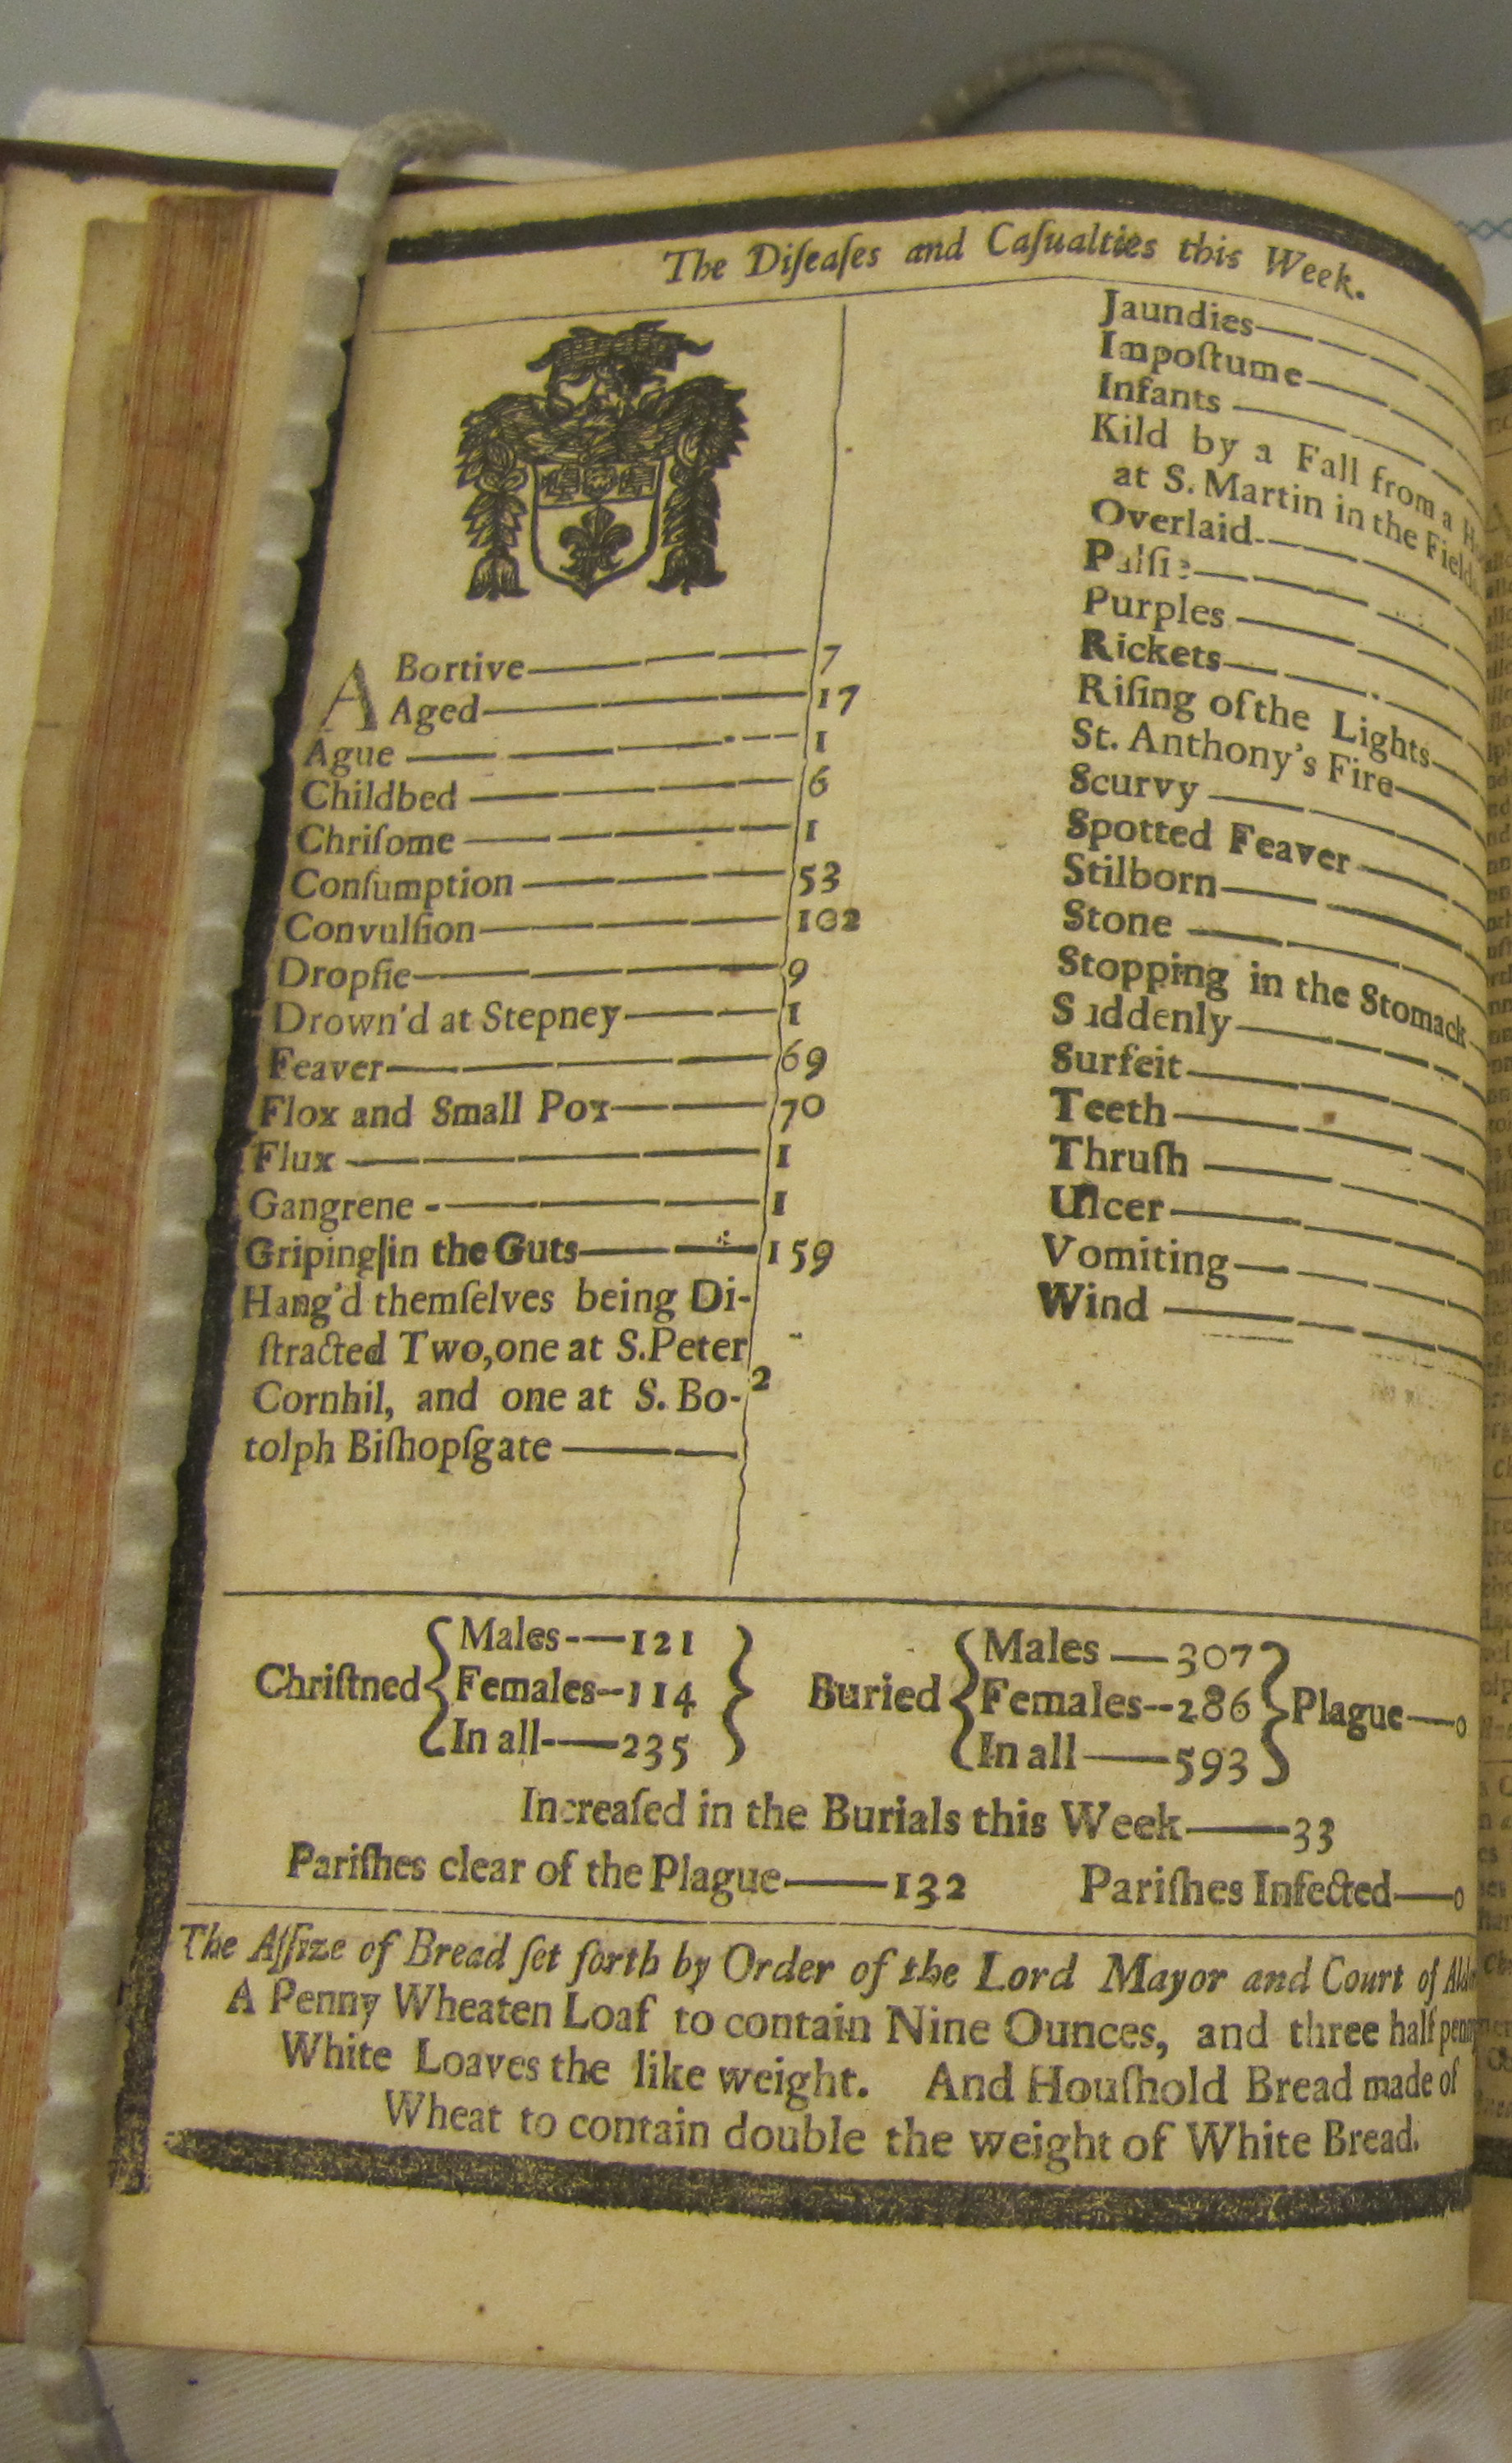 The Diſeaſes and Caſualties this Week.
ABortive——— 7
Aged——— 17
Ague ——— 1
Childbed ——— 6
Chriſome ——— 1
Conſumption ——— 53
Convulſion——— 102
Dropſie——— 9
Drown'd at Stepney——— 1
Feaver——— 69
Flox and Small Pox——— 70
Flux ——— 1
Gangrene -——— 1
Griping in the Guts——— 159
Hang'd themſelves being Di-
ſtracted Two, one at S. Peter
Cornhil, and one at S. Bo- 2
tolph Biſhopſgate ———
Jaundies———
Impoſtume———
Infants ———
Kild by a Fall from a
at S. Martin in the
Overlaid-———
Palſie———
Purples ———
Rickets———
Riſing of the Lights—
St. Anthony's Fire—
Scurvy ———
Spotted Feaver ———
Stilborn———
Stone ———
Stopping in the Stomack
Suddenly———
Surfeit———
Teeth———
Thruſh ———
Ulcer———
Vomiting———
Wind ———
Males-—121
Chriſtned Females--114
In all-—235
Males —307
Buried Females--286 Plague—0
In all —593
Increaſed in the Burials this Week——33
Pariſhes clear of the Plague——132 Pariſhes Infected—0
The Aſſize of Bread ſet forth by Order of the Lord Mayor and Court of
A Penny Wheaten Loaf to contain Nine Ounces, and three half
White Loaves the like weight. And Houſhold Bread made of
Wheat to contain double the weight of White Bread.